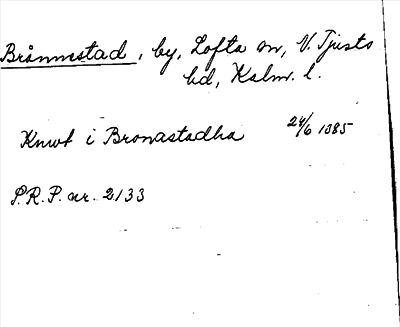 Brånnestad, by, Lofta sn, V. Tjusts
hd, Kalm. l.
Knut i Bronastadha 24/6 1385
P.R.P. nr. 2133